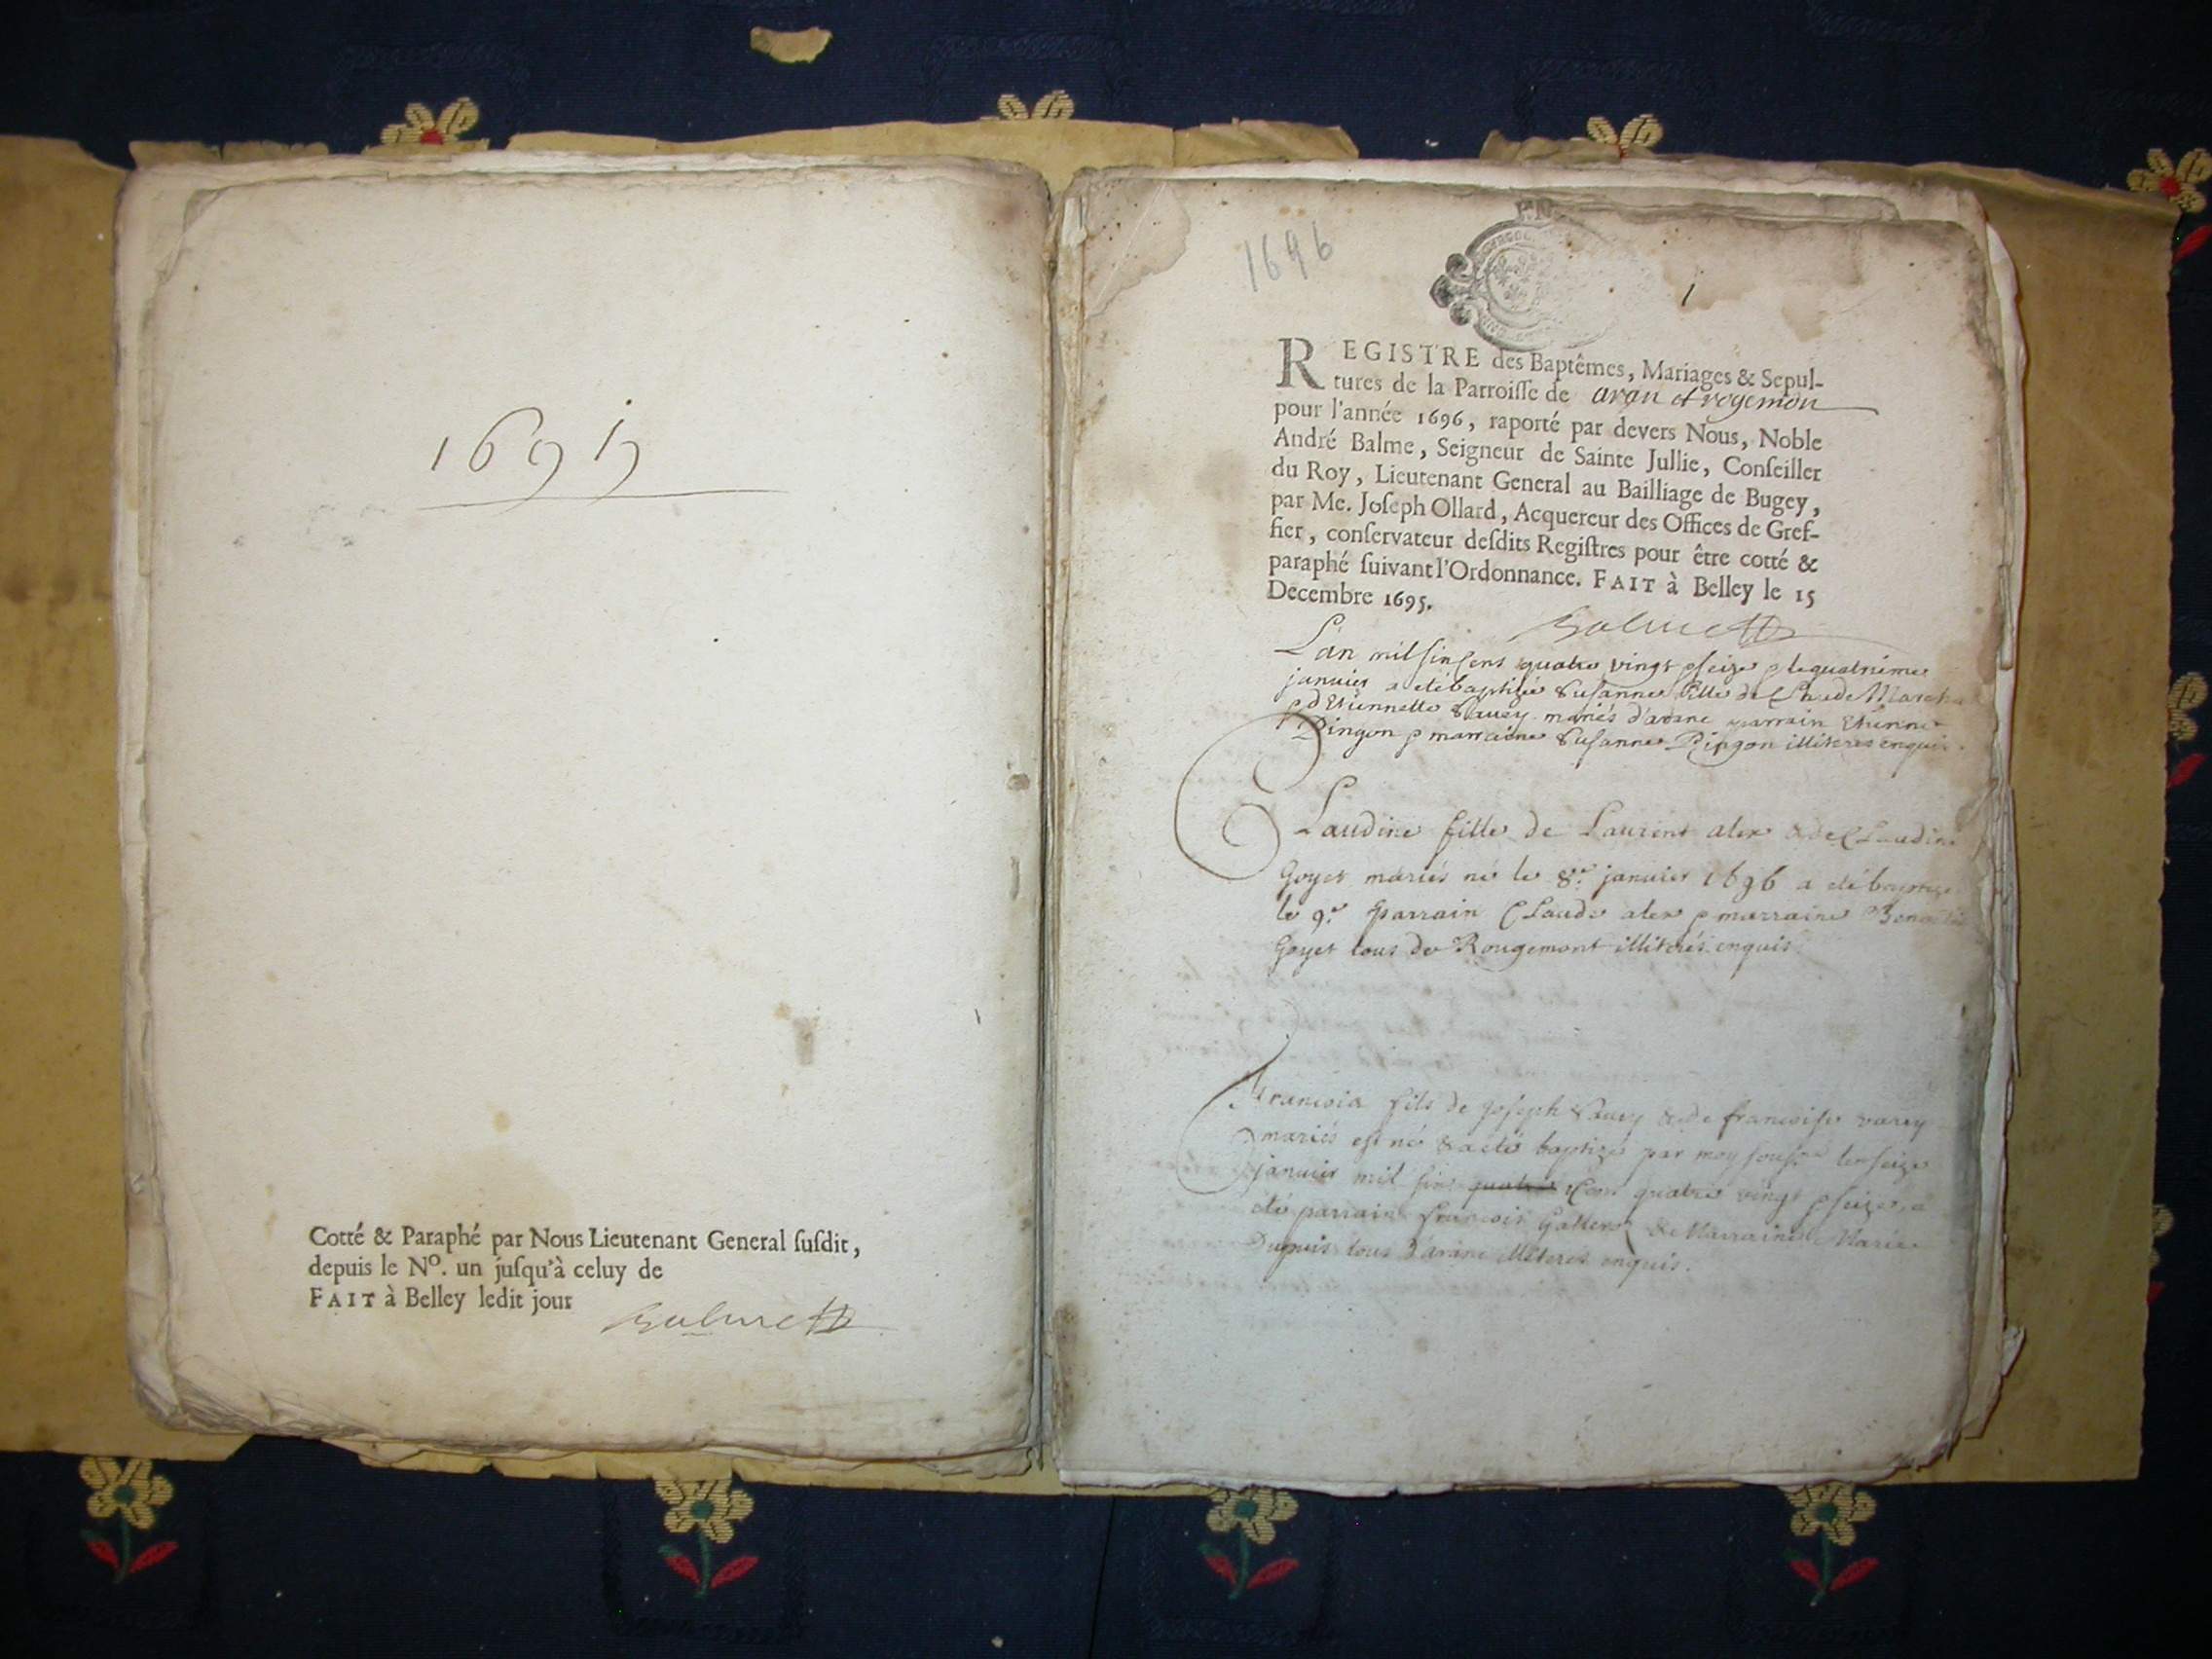 169
Cotté & Paraphé par Nous Lieutenant General ſuſdit,
depuis le Nº. un juſqu'à celuy de
FAIT à Belley ledit jour
1696
1
REGISTRE des Baptêmes, Mariages & Sepul-
tures de la Parroiſſe de aran et rogemon
pour l'année 1696, raporté par devers Nous, Noble
André Balme, Seigneur de Sainte Jullie, Conſeiller
du Roy, Lieutenant General au Bailliage de Bugey,
par Me. Joſeph Ollard, Acquereur des Offices de Gref-
fier, conſervateur deſdits Regiſtres pour être cotté &
paraphé ſuivant l'Ordonnance. FAIT à Belley le 15
Decembre 1695.
L'an mil sin sens quatre vingt seize le quatriéme
janvier a eté baptizée Susanne fille de Claude
d'Etiennette Savey mariés d'arane parrain Etienne
Pingon marraine Susanne Pingon illiteres enquis
Claudine fille de Laurent alex & de Claudine
Goyet mariés né le 8e janvier 1696 a eté baptizé
le 9e parrain Claude alex marraine
Goyet tous de Rougemont illiterés enquis
Francois fils de joseph Savey & de francoise varey
mariés est né & a eté baptizé par moy sous le seize
janvier mil sin quatre cens quatre vingt seize, a
eté parrain francois & Marraine Marie
Dupuis tous d'arane illiteres enquis.